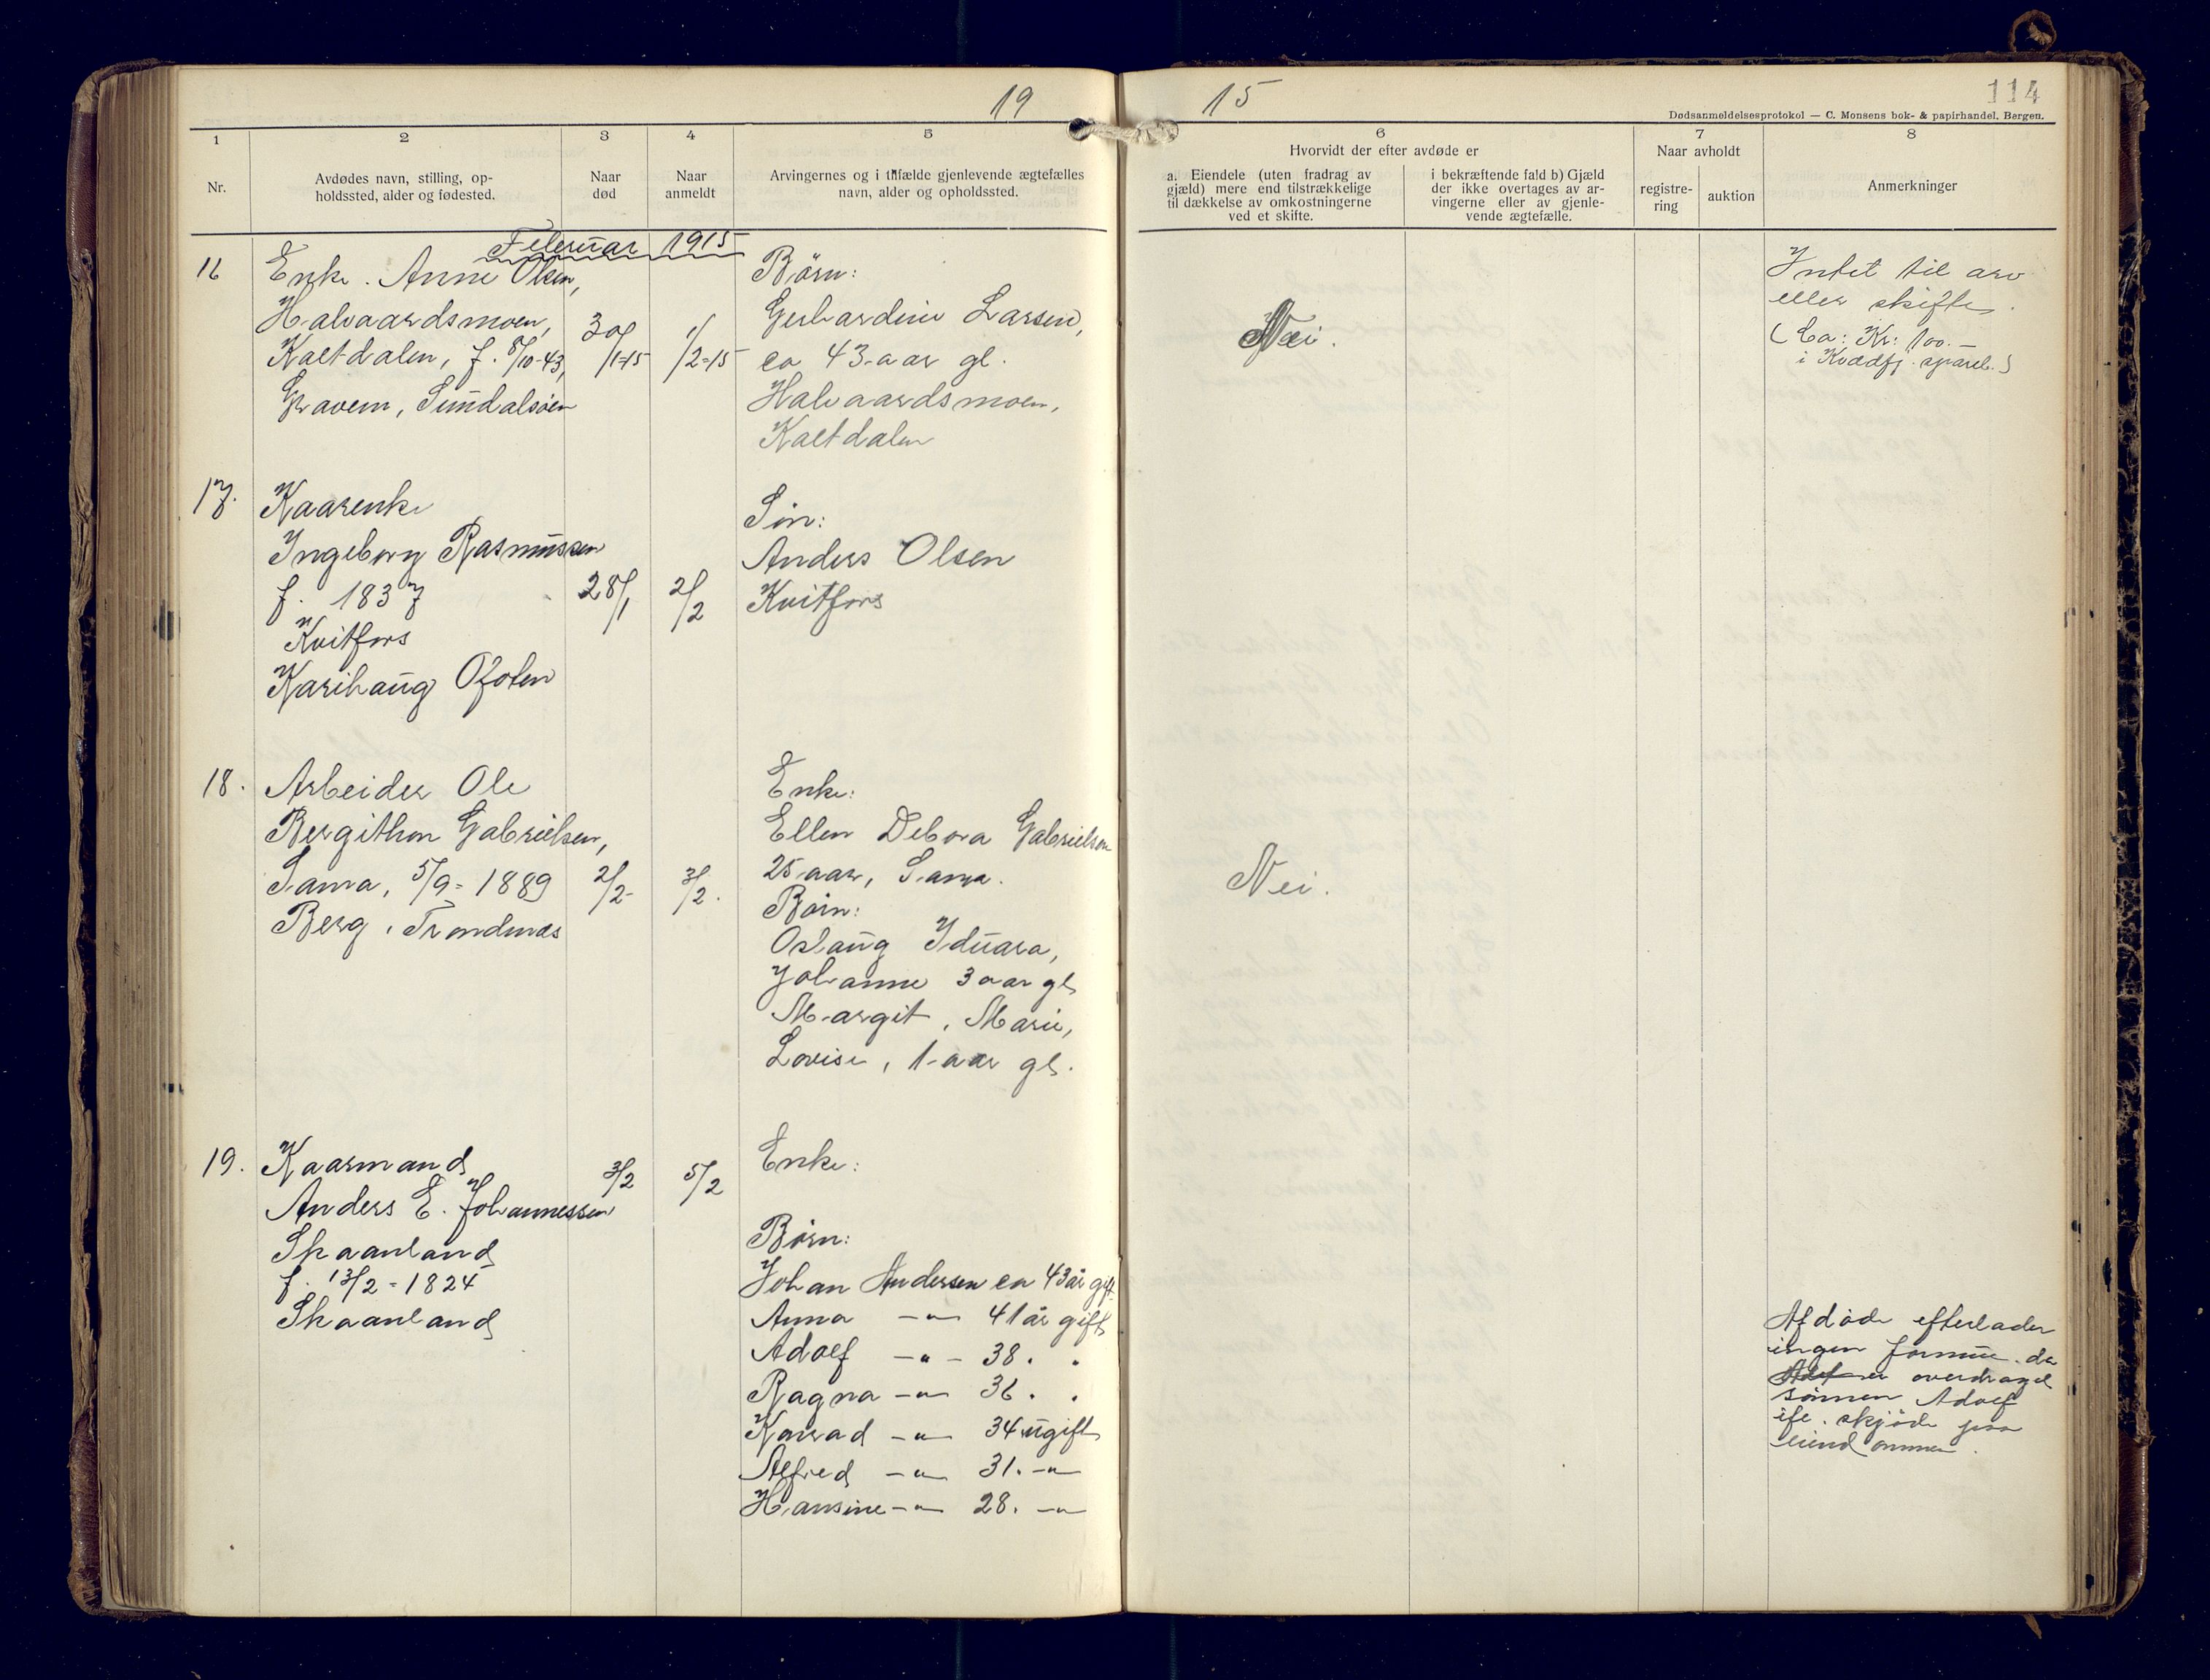 19 15
114
Dødsanmeldelsesprotokol — C. Monsens bok- & papirhandel, Bergen.
1
Nr.
2
Avdødes navn, stilling, op-
holdssted, alder og fødested.
3
Naar
død
4
Naar
anmeldt
5
Arvingernes og i tilfælde gjenlevende ægtefælles
navn, alder og opholdssted.
6
Hvorvidt der efter avdøde er
a. Eiendele (uten fradrag av
gjæld) mere end tilstrækkelige
til dækkelse av omkostningerne
ved et skifte.
i bekræftende fald b) Gjæld
der ikke overtages av ar-
vingerne eller av gjenle-
vende ægtefælle.
7
Naar avholdt
registre-
ring
auktion
8
Anmerkninger
Februar 1915
16
Enke. Anne Olsen,
Halvaardsmoen,
Kaltdalen, f. 8/10-43,
Gravem, Sundalsøen
30/1-15
1/2-15
Børn:
Gerhardine Larsen,
ca 43-aar gl.
Halvaardsmoen,
Kaltdalen
Nei.
Intet til arv
eller skifte.
(Ca: Kr: 100.—
i Kvædfj. spareb.)
17.
Kaarenke
Ingeborg Rasmussen
f. 1837
Kvitfors
Karihaug Ofoten
28/1
2/2
Søn:
Anders Olsen
Kvitfors
18.
Arbeider Ole
Bergithon Gabrielsen,
Sama, 5/9-1889
Berg, Trondenæs
2/2-
3/2.
Enke:
Ellen Debora Gabrielsen
25-aar, Sama.
Børn:
Oslaug Iduara,
Johanne 3 aar gl
Margit, Marie,
Lovise, 1-aar gl.
Nei.
19.
Kaarmand
Anders E. Johannessen
Skaanland
f. 13/2-1824
Skaanland
3/2
5/2
Enke:
Børn:
Johan Andersen ca 43 år gift
Anna —"— 41 år gift
Adolf —"— 38. "
Ragna —"— 36. "
Konrad —"— 34 ugift
Alfred —"— 31. —"
Hansine —"— 28. —"
Afdøde efterlader
ingen formue. da
er overdraget
sønnen Adolf
ifl. skjøde paa
eiendommen.